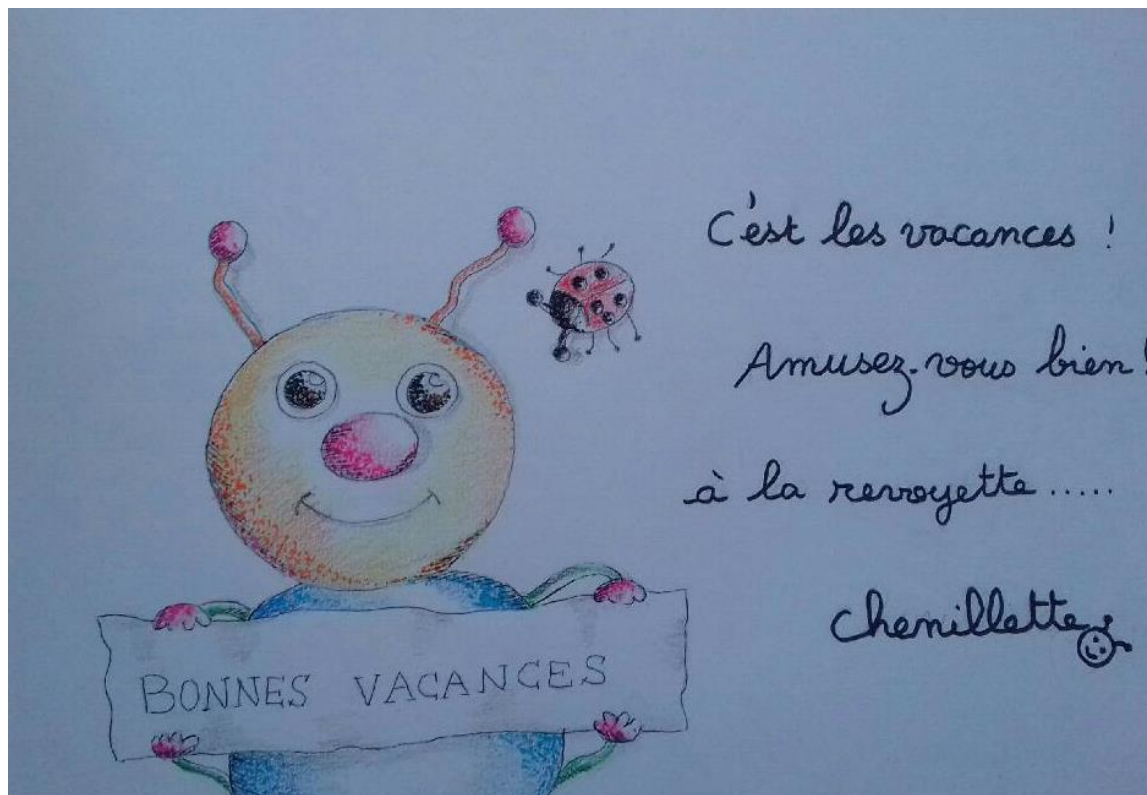 C'est les vacances !
Amusez-vous bien !
à la revoyette.....
chenillette
BONNES VACANCES